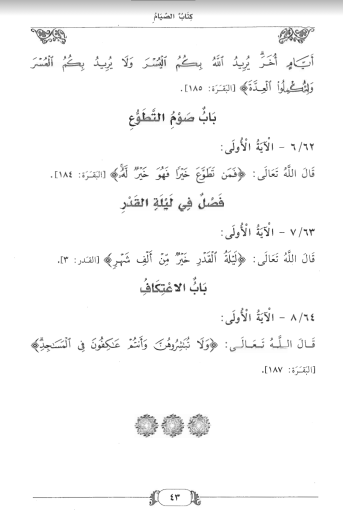 كِتَابُ الصِّيَامِ
أَيَّامٍ أُخَرَ يُرِيدُ اللَّهُ بِكُمُ الْيُسْرَ وَلَا يُرِيدُ بِكُمُ الْعُسْرَ
وَلِتُكْمِلُوا الْعِدَّةَ﴾ [البَقَرَة: ١٨٥].
بَابُ صَوْمِ التَّطَوُّعِ
٦/٦٢ - الْآيَةُ الْأُولَى:
قَالَ اللَّهُ تَعَالَى: ﴿فَمَن تَطَوَّعَ خَيْرًا فَهُوَ خَيْرٌ لَّهُ﴾ [البَقَرَة: ١٨٤].
فَصْلٌ فِي لَيْلَةِ القَدْرِ
٧/٦٣ - الْآيَةُ الْأُولَى:
قَالَ اللَّهُ تَعَالَى: ﴿لَيْلَةُ الْقَدْرِ خَيْرٌ مِّنْ أَلْفِ شَهْرٍ﴾ [القدر: ٣].
بَابُ الاعْتِكَافِ
٨/٦٤ - الْآيَةُ الْأُولَى:
قَالَ اللَّهُ تَعَالَى: ﴿وَلَا تُبَٰشِرُوهُنَّ وَأَنتُمْ عَٰكِفُونَ فِي الْمَسَٰجِدِ﴾
[البَقَرَة: ١٨٧].
٤٣